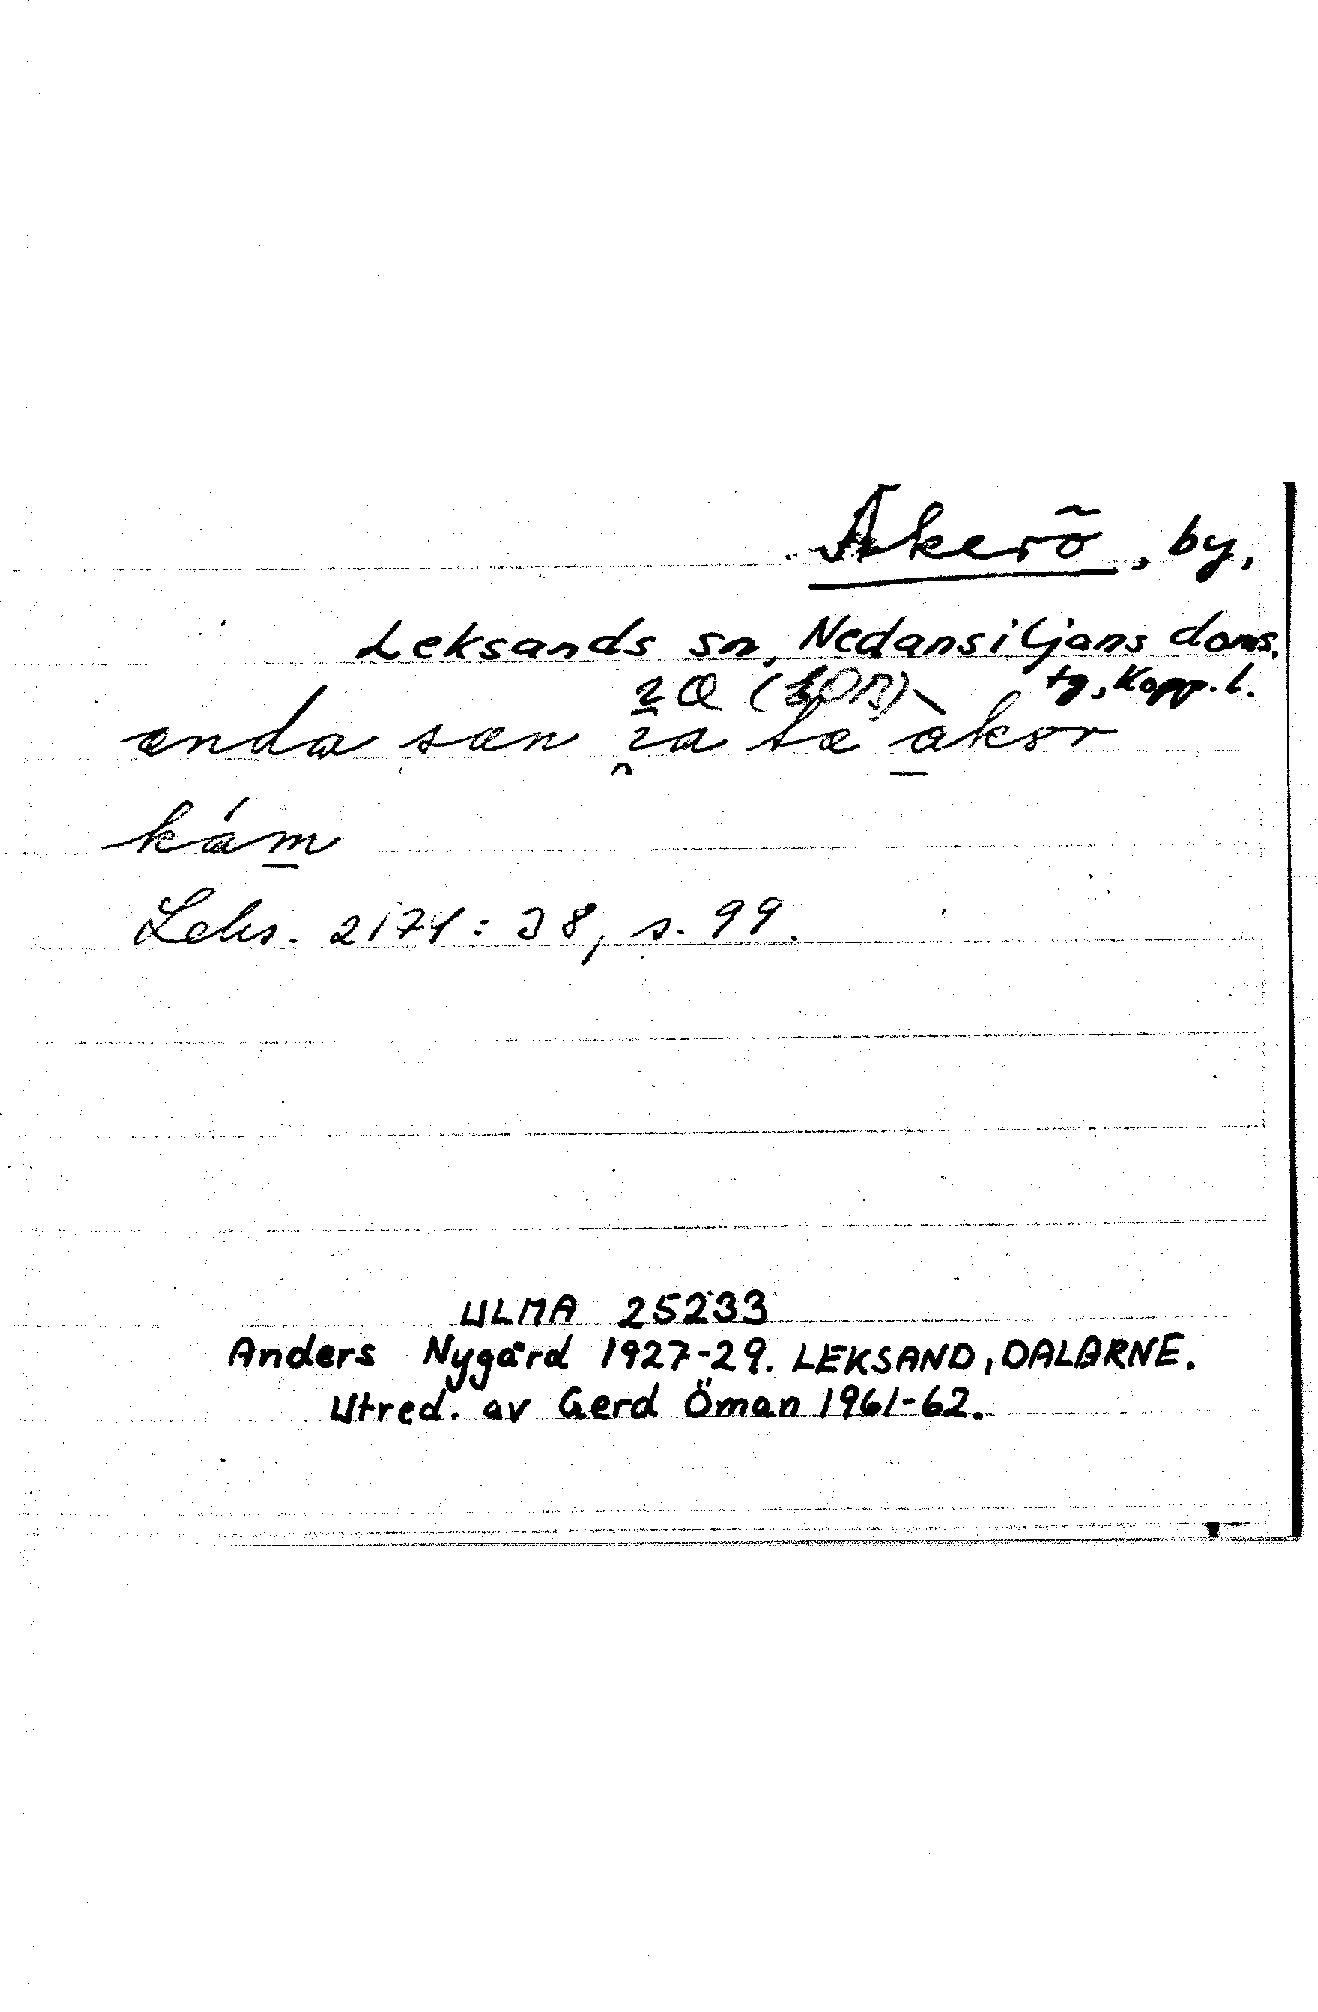 Åkerö, by,
Leksands sn, Nedansiljans doms.
tg, Kopp. l.
ænda sæn ɿa te akər
kám
Leks. 2174: 38, s. 99.
ULMA 25233
Anders Nygård 1927-29. LEKSAND, DALARNE.
Utred. av Gerd Öman 1961-62.